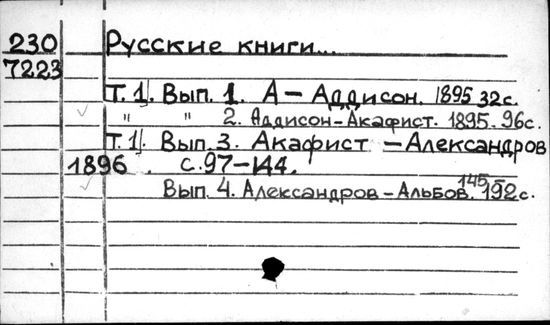 230 Русские книги...
7223
Т. 1. Вып. 1. А — Аддисон. 1895 32 с.
" " 2. Аддисон-Акафист. 1895. 96с.
Т. 1. Вып. 3. Акафист — Александров
1896. с. 97-144.
Вып. 4. Александров-Альбов. 145-192 с.